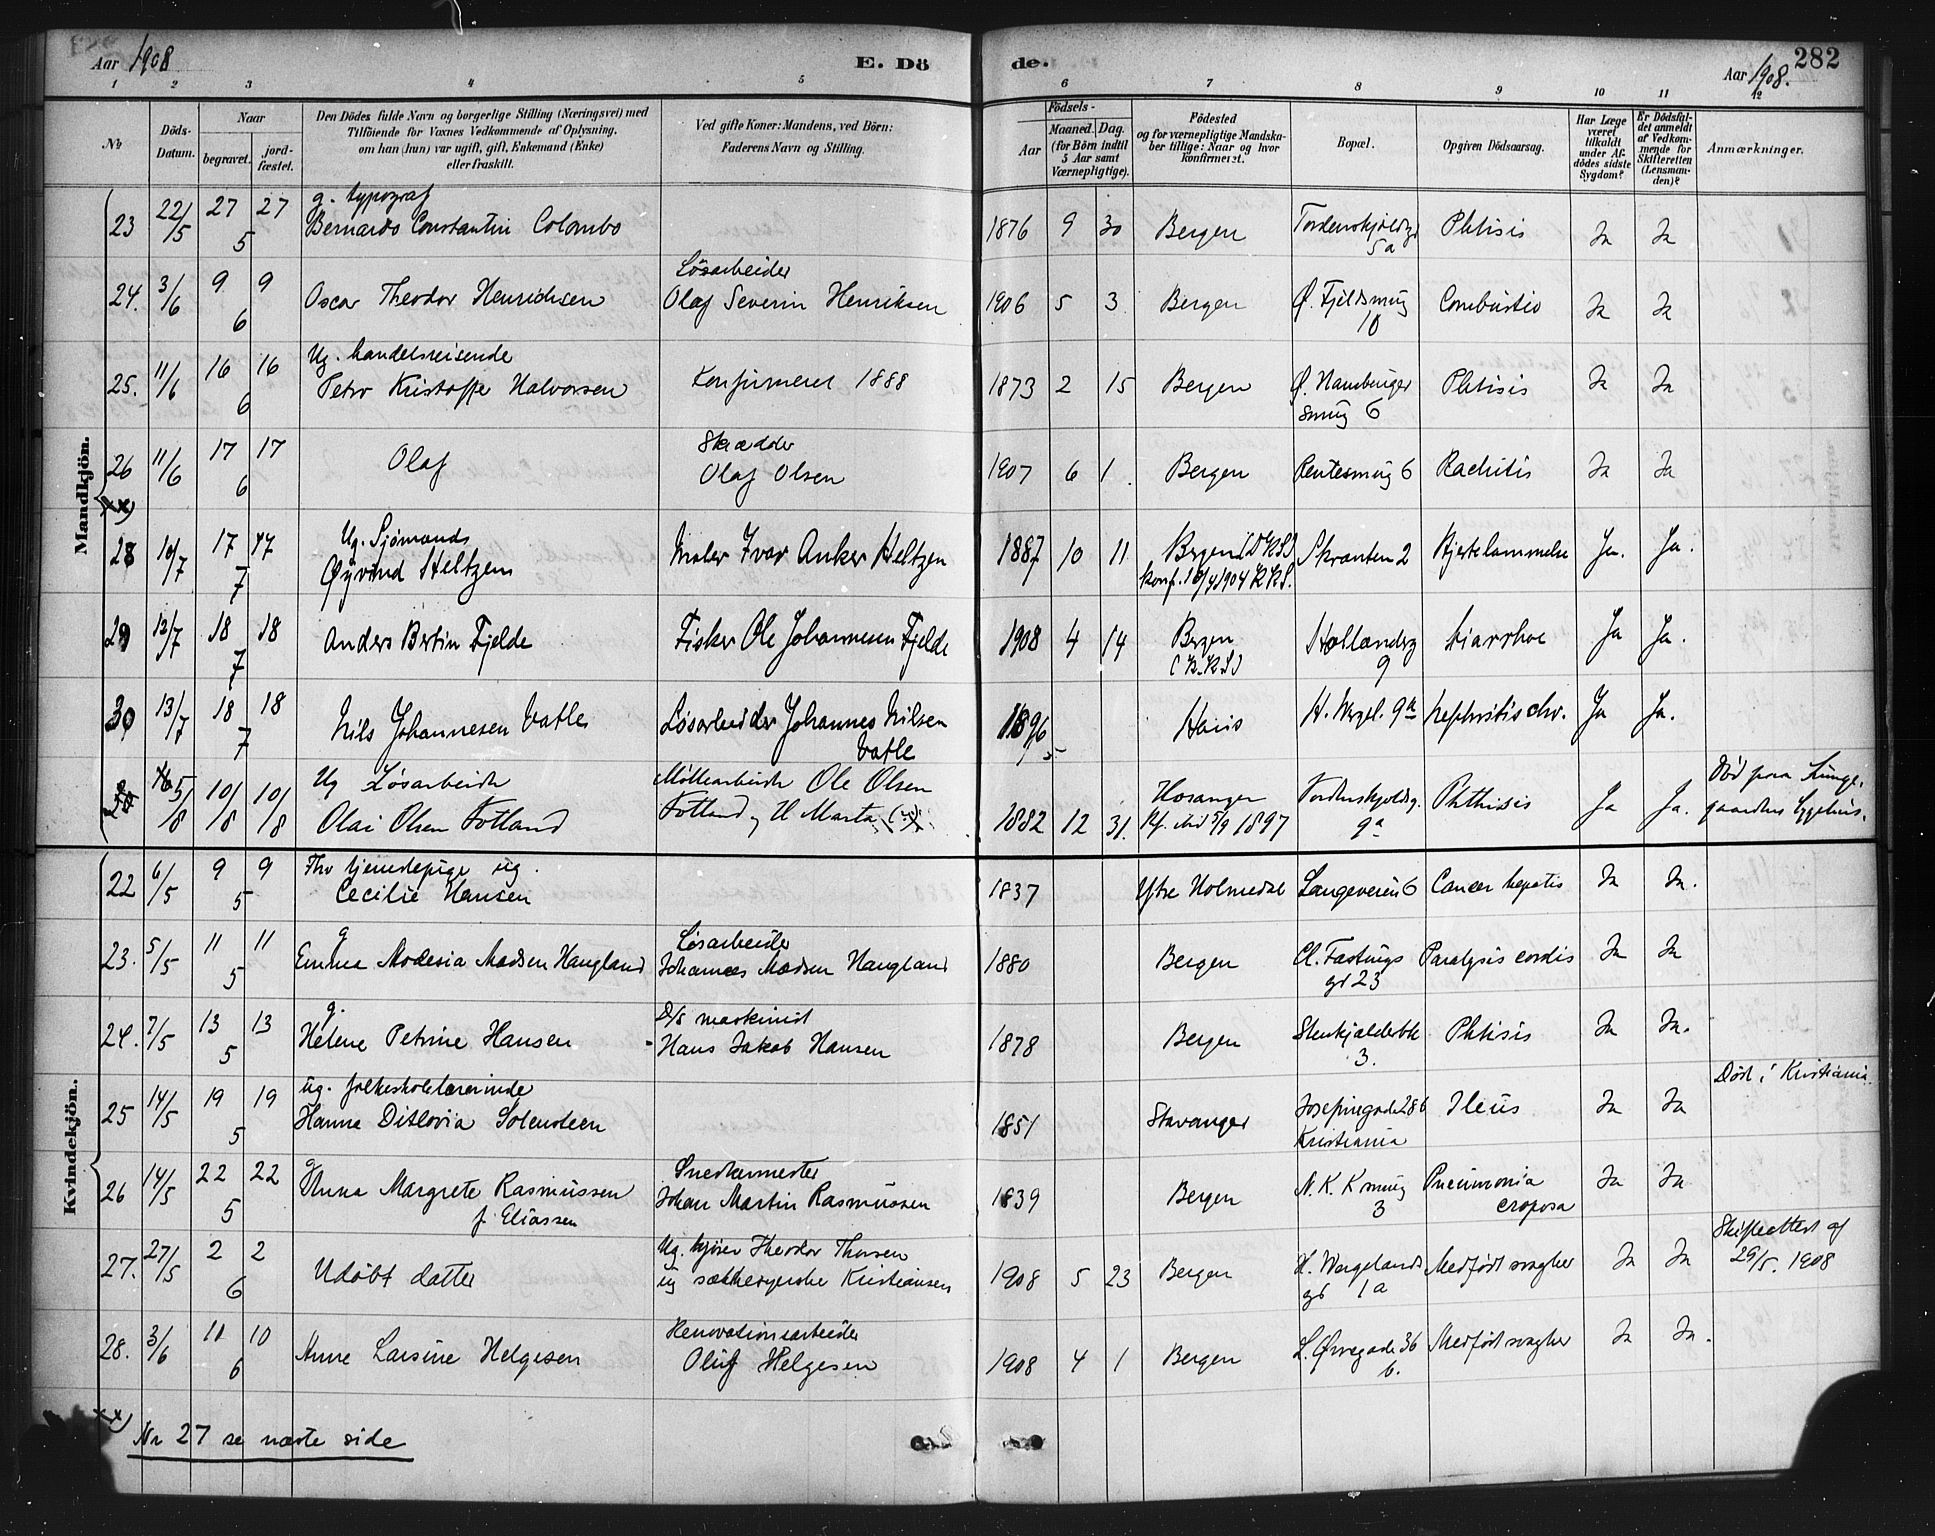 Aar 1908 E. Dö
1 2 3 4 5
No
Döds-Datum.
Naar
begravet.
jord-fæstet.
Den Dödes fulde Navn og borgerlige Stilling (Næringsvei) med
Tilföiende for Voxnes Vedkommende af Oplysning.
om han (hun) var ugift, gift, Enkemand (Enke)
eller fraskilt.
Ved gifte Koner: Mandens, ved Börn:
Faderens Navn og Stilling.
de. 282
Aar 1908.
6 7 8 9 10 11 12
Födsels-
Aar
Maaned. Dag.
(for Börn indtil
5 Aar samt
Værnepligtige).
Födested
og for værnepligtige Mandska-
ber tillige: Naar og hvor
konfirmeret.
Bopæl.
Opgiven Dödsaarsag.
Har Læge
været
tilkaldt
under Af-
dödes sidste
Sygdom?
Er Dödsfal-
det anmeldt
af Vedkom-
mende for
Skifteretten
(Lensman-
den)?
Anmærkninger.
Mandkjön.
g. typograf
23 22/5 27/5 27 Bernardo Constantin Colombo 1876 9 30 Bergen Tordenskjoldsgd 5a Phtisis Ja Ja
Løsarbeider
24. 3/6 9/6 9 Oscar Theodor Henrichsen Olaf Severin Henriksen 1906 5 3 Bergen Ø. Fjeldsmug 10 Combustio Ja Ja
Ug. handelsreisende
25. 11/6 16/6 16 Petro Kristoffe Halvorsen Konfirmeret 1888 1873 2 15 Bergen Ø. Hamburger smug 6 Phtisis Ja Ja
Skrædder
26 11/6 17/6 17 Olaf Olaf Olsen 1907 6 1 Bergen Rentesmug 6 Rachitis Ja Ja
xx)
Ug. Sjømand
28 10/7 17/7 17 Øyvind Heltzen Maler Ivar Anker Heltzen 1887 10 11 Bergen (D.K.S) Skranten 2 Hjertelammelse Ja. Ja.
konf. 10/4 1904 K.K.S.
29 12/7 18/7 18 Anders Bertin Fjelde Fisker Ole Johannesen Fjelde 1908 4 14 Bergen (K.K.S) Hollenderg 9 diarrhoe Ja Ja.
30 13/7 18/7 18 Nils Johannesen Vatle Løsarbeider Johannes Nilsen Vatle 1896 Haus H. Wergel. 9a nephritis chr. Ja Ja.
Ug Løsarbeider
5/8 10/8 10/8 Olai Olsen Fotland Møllearbeider Ole Olsen
Fotland og H Marta 1882 12 31. Hosanger
Kf. 5/9 1897 Tordenskjoldsg. 9a Phthisis Ja Ja. Død paa Lunge-
gaardens Sygehus.
Kvindekjön.
Fhv tjenestepige ug.
22 6/5 9/5 9 Cecilie Hansen 1837 Ytre Holmedal Langeveien 6 Cancer hepatis Ja Ja.
g Løsarbeider
23. 5/5 11/5 11 Emma Modesia Madsen Haugland Johannes Madsen Haugland 1880 Bergen Cl. Fastings gd 23 Paralysis cordis Ja Ja
g. D/S maskinist
24. 7/5 13/5 13 Helene Petrine Hansen Hans Jakob Hansen 1878 Bergen Stenkjelderbk 3. Phtisis Ja Ja.
ug. folkeskolelærerinde
25 14/5 19/5 19 Hanne Ditlovia Solensteen 1851 Stavanger Josefinegade 28b Kristiania Ileus Ja Ja Død i Kristiania.
g Snedkermester
26 14/5 22/5 22 Anna Margrete Rasmussen f. Eliassen Johan Martin Rasmussen 1839 Bergen N. K. K smug 3 Pneumonia croposa Ja Ja
Ug. kjører Theodor Thorsen
27. 27/5 2/6 2 Udøbt datter ug sækkesyerske Kristiansen 1908 5 23 Bergen H. Wergelands gd 1a Medfødt svaghet Ja Ja Skifteattest af
29/5. 1908
Renovationsarbeider
28. 3/6 11/6 10 Anne Larsine Helgesen Oluf Helgesen 1908 4 1 Bergen L. Øvregade 36 b. Medfødt svaghet Ja Ja.
xx)
Nr 27 se næste side